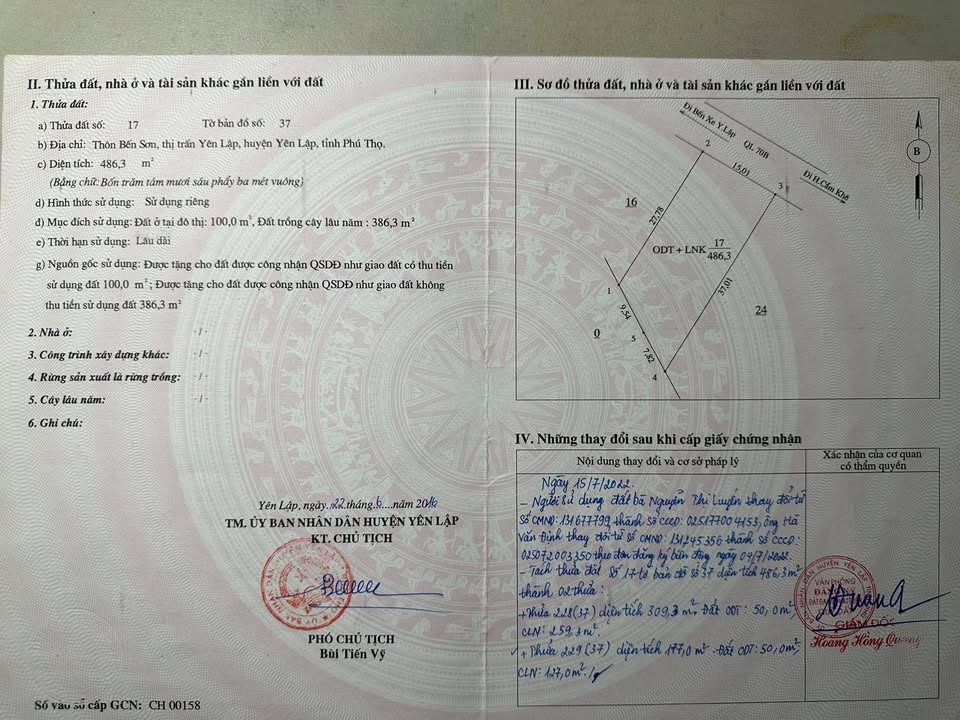 II. Thửa đất, nhà ở và tài sản khác gắn liền với đất
1. Thửa đất:
a) Thửa đất số: 17 Tờ bản đồ số: 37
b) Địa chỉ: Thôn Bến Sơn, thị trấn Yên Lập, huyện Yên Lập, tỉnh Phú Thọ.
c) Diện tích: 486,3 m²
(Bằng chữ: Bốn trăm tám mươi sáu phẩy ba mét vuông)
d) Hình thức sử dụng: Sử dụng riêng
đ) Mục đích sử dụng: Đất ở tại đô thị: 100,0 m², Đất trồng cây lâu năm : 386,3 m²
e) Thời hạn sử dụng: Lâu dài
g) Nguồn gốc sử dụng: Được tặng cho đất được công nhận QSDĐ như giao đất có thu tiền
sử dụng đất 100,0 m²; Được tặng cho đất được công nhận QSDĐ như giao đất không
thu tiền sử dụng đất 386,3 m²
2. Nhà ở: -/-
3. Công trình xây dựng khác: -/-
4. Rừng sản xuất là rừng trồng: -/-
5. Cây lâu năm: -/-
6. Ghi chú:
Yên Lập, ngày 22 tháng 6 năm 2016
TM. ỦY BAN NHÂN DÂN HUYỆN YÊN LẬP
KT. CHỦ TỊCH
PHÓ CHỦ TỊCH
Bùi Tiến Vỹ
Số vào sổ cấp GCN: CH 00158
III. Sơ đồ thửa đất, nhà ở và tài sản khác gắn liền với đất
Đi Bến Xe Y.Lập
QL 70B
Đi H.Cẩm Khê
B
2
15,01
3
16
27,78
ODT + LNK 17
486,3
37,01
24
1
9,54
0
5
7,82
4
IV. Những thay đổi sau khi cấp giấy chứng nhận
Nội dung thay đổi và cơ sở pháp lý
Xác nhận của cơ quan
có thẩm quyền
Ngày 15/7/2022.
- Người sử dụng đất bà Nguyễn Thị Luyến thay đổi từ
Số CMND: 131677799 thành số CCCD: 025177004153, ông Hà
Văn Định thay đổi từ số CMND: 131245356 thành số CCCD:
025072003350 theo đơn đăng ký biến động ngày 04/7/2022.
- Tách thửa đất số 17 tờ bản đồ số 37 diện tích 486,3 m²
thành 02 thửa:
+ Thửa 228 (37) diện tích 309,3 m². Đất ODT: 50,0 m²
CLN: 259,3 m².
+ Thửa 229 (37) diện tích 177,0 m². Đất ODT: 50,0 m²
CLN: 127,0 m².
VĂN PHÒNG
GIÁM ĐỐC
Hoàng Hồng Quang